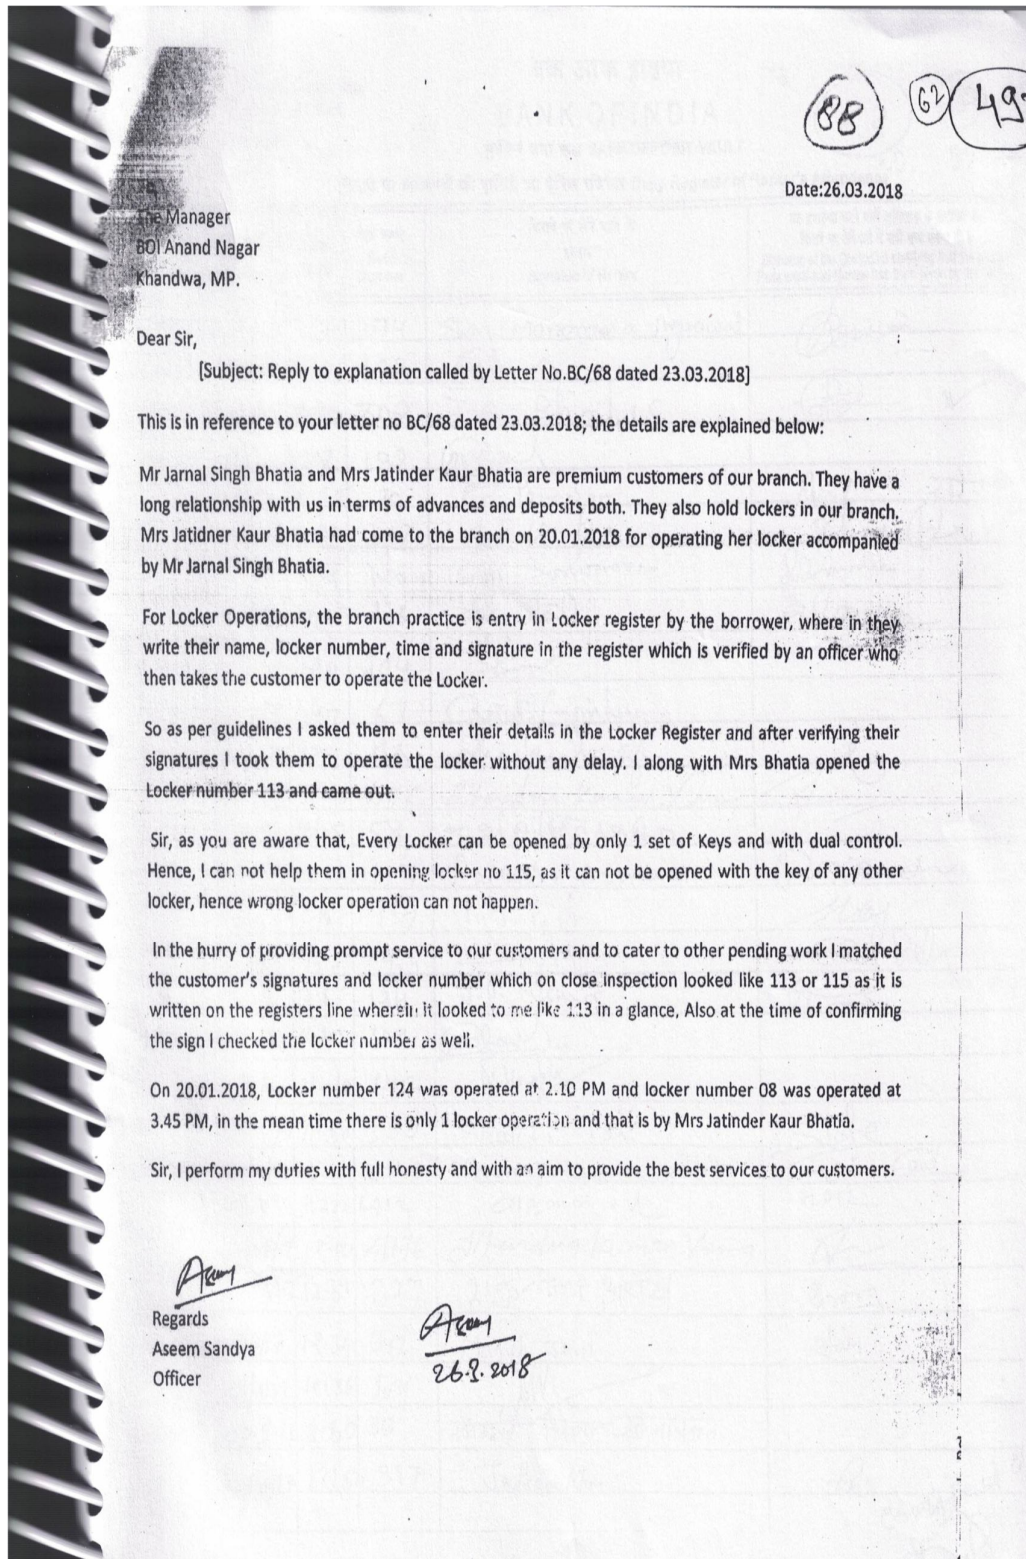 88 62 49
Date:26.03.2018
The Manager
BOI Anand Nagar
Khandwa, MP.
Dear Sir,
[Subject: Reply to explanation called by Letter No.BC/68 dated 23.03.2018]
This is in reference to your letter no BC/68 dated 23.03.2018; the details are explained below:
Mr Jarnal Singh Bhatia and Mrs Jatinder Kaur Bhatia are premium customers of our branch. They have a
long relationship with us in terms of advances and deposits both. They also hold lockers in our branch.
Mrs Jatidner Kaur Bhatia had come to the branch on 20.01.2018 for operating her locker accompanied
by Mr Jarnal Singh Bhatia.
For Locker Operations, the branch practice is entry in Locker register by the borrower, where in they
write their name, locker number, time and signature in the register which is verified by an officer who
then takes the customer to operate the Locker.
So as per guidelines I asked them to enter their details in the Locker Register and after verifying their
signatures I took them to operate the locker without any delay. I along with Mrs Bhatia opened the
Locker number 113 and came out.
Sir, as you are aware that, Every Locker can be opened by only 1 set of Keys and with dual control.
Hence, I can not help them in opening locker no 115, as it can not be opened with the key of any other
locker, hence wrong locker operation can not happen.
In the hurry of providing prompt service to our customers and to cater to other pending work I matched
the customer's signatures and locker number which on close inspection looked like 113 or 115 as it is
written on the registers line wherein it looked to me like 113 in a glance. Also at the time of confirming
the sign I checked the locker number as well.
On 20.01.2018, Locker number 124 was operated at 2.10 PM and locker number 08 was operated at
3.45 PM, in the mean time there is only 1 locker operation and that is by Mrs Jatinder Kaur Bhatia.
Sir, I perform my duties with full honesty and with an aim to provide the best services to our customers.
Aseem
Regards
Aseem Sandya
Officer
Aseem
26.3.2018